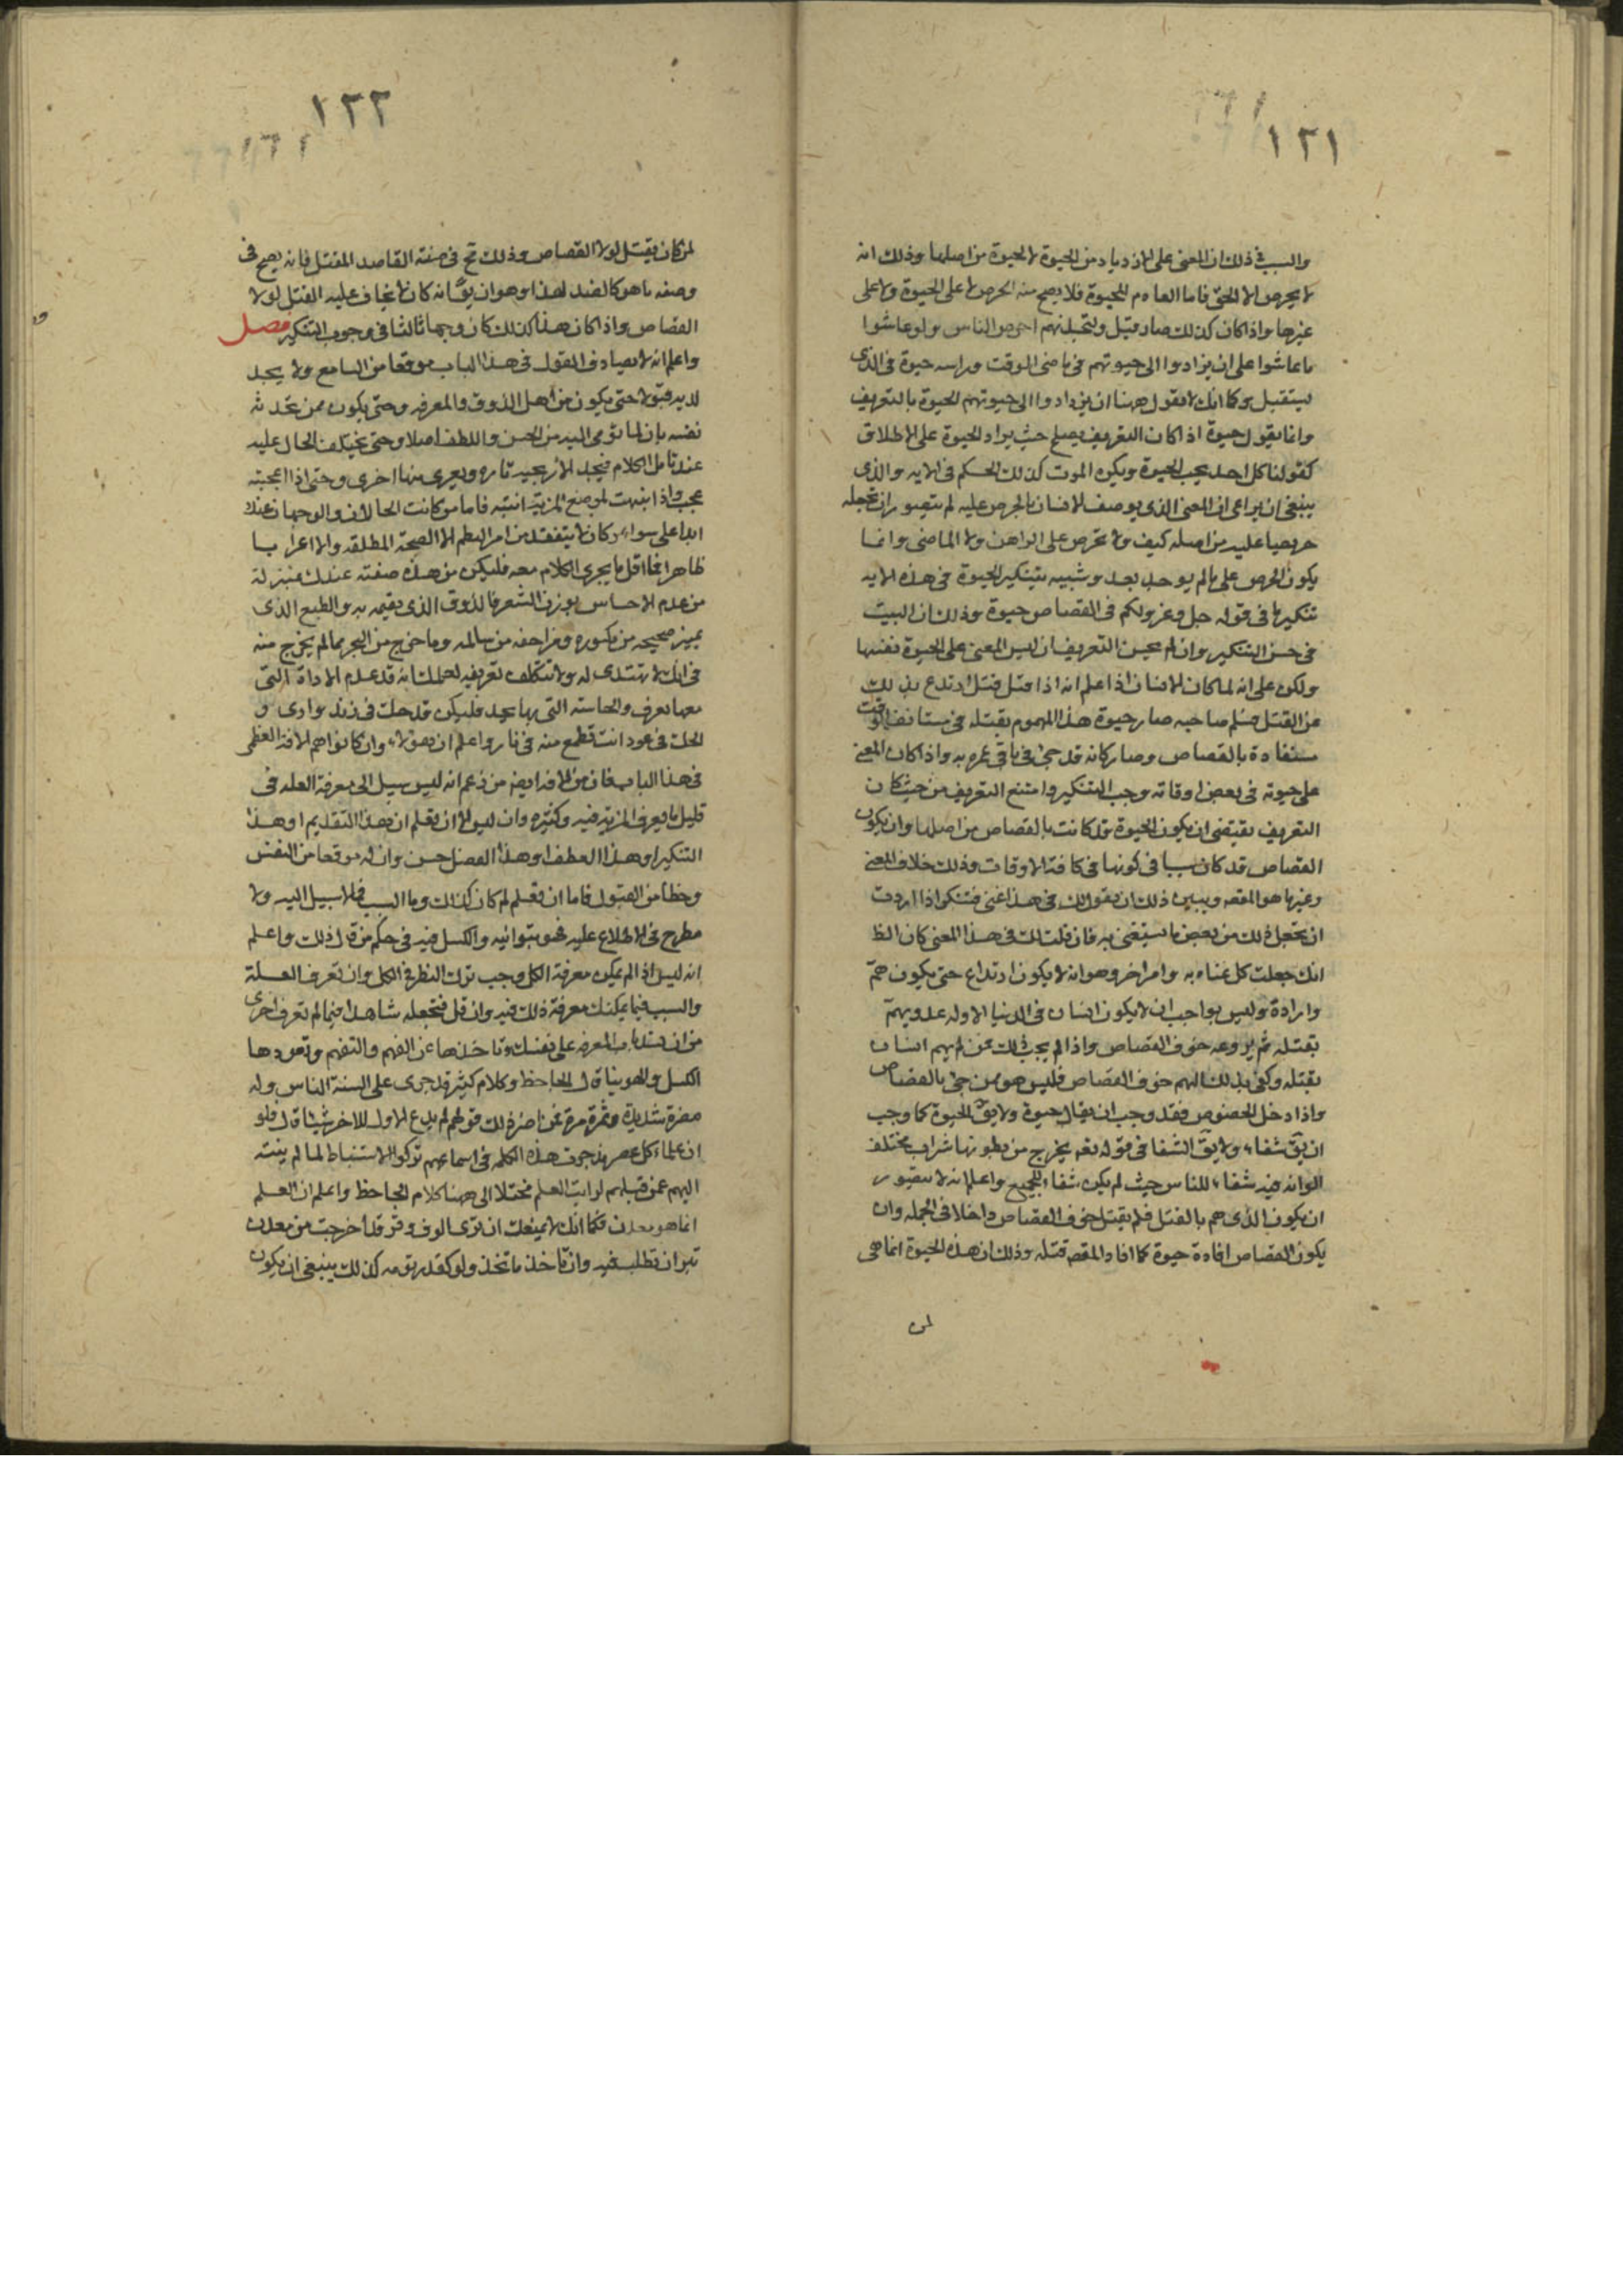 ١٢١
والسبب في ذلك ان المعنى على الازدياد من الحيوة لا الحيوة من اصلها وذلك انه
لا يحرص الا الحى فاما العادم للحيوة فلا يصح منه الحرص لا على الحيوة ولا على
غيرها واذا كان كذلك صار وقيل ولتجدنهم احرص الناس ولو عاشوا
ما عاشوا على ان يزادوا الى حيوتهم في ماضى الوقت وراسه حيوة في الذى
يستقبل وكما انك لا تقول ههنا ان يزدادوا الى حيوتهم الحيوة بالتعريف
وانما يقول حيوة اذا كان التعريف يصلح حيث يراد الحيوة على الاطلاق
كقولنا كل احد يحب الحيوة ويكره الموت كذلك الحكم في الايه والذى
ينبغى ان يراعى ان المعنى الذى يوصف الانسان بالحرص عليه لم يتصور ان تجعله
حريصا عليه من اصله كيف ولا تحرص على الراهن ولا الماضى وانما
يكون الحرص على ما لم يوجد بعد وشبيه بتنكير الحيوة في هذه الايه
تنكيرها في قوله جل وعز ولكم في القصاص حيوة وذلك ان السبب
في حسن التنكير وان لم يحسن التعريف ان ليس المعنى على الحيوة نفسها
ولكن على انه لما كان الانسان اذا علم انه اذا قتل قتل ارتدع بذلك
عن القتل فسلم صاحبه صار حيوة هذا المهموم بقتله في مستانف الوقت
مستفادة بالقصاص وصار كانه قد حيى في باقى عمره به واذا كان المعنى
على حيوته في بعض اوقاته وجب التنكير وامتنع التعريف من حيث كان
التعريف يقتضى ان يكون الحيوة قد كانت بالقصاص من اصلها وان يكون
القصاص قد كان سببا في كونها في كافة الاوقات وذلك خلاف المعنى
وغير ما هو المقصد ويبين ذلك ان تقول لك في هذا غنى فتنكر اذا اردت
ان تجعل ذلك من بعض ما يستغنى به فان قلت لك في هذا المعنى كان الظ
انك جعلت كل غناه به وامر اخر وهو انه لا يكون ارتداع حتى يكون همّ
وارادة وليس بواجب ان لا يكون انسان في الدنيا الا وله عدو يهمّ
بقتله ثم يروعه خوف القصاص واذا لم يجب ذلك فمن لم يهم انسان
بقتله وكفى بذلك الهم خوف القصاص فليس هو ممن حيى بالقصاص
واذا دخل الخصوص فقد وجب ان يقال حيوة ولا يقّ الحيوة كما وجب
ان يقّ شفاء ولا يقّ الشفا في قوله تعه يخرج من بطونها شراب مختلف
الوانه فيه شفاء للناس حيث لم يكن شفاء للجميع واعلم انه لا يتصور
ان يكون الذى هم بالقتل فلم يقتل خوف القصاص داخلا في الجمله وان
يكون القصاص افادة حيوة كما افاد المقصد قتله وذلك ان هذه الحيوة انما هى
لمن
١٢٢
لمن كان يقتل لولا القصاص وذلك في صفة القاصد للقتل فانه يصح في
وصفه ما هو كالضد لهذا وهو ان يقّ انه كان لا يخاف عليه القتل لولا
القصاص واذا كان هذا كذلك كان وجها ثالثا في وجوب التنكير فصل
واعلم انه لا يصادف القول في هذا الباب موقعا من السامع ولا يجد
لديه قبولا حتى يكون من اهل الذوق والمعرفه وحتى يكون ممن تحدثه
نفسه بان لما تومى اليه من الحسن واللطف اصلا وحتى يختلف الحال عليه
عند تامل الكلام فيجد الاريحيه تاره ويعرى منها اخرى وحتى اذا اعجبته
عجب واذا انبهت لموضع المزية انتبه فاما من كانت الحالان والوجهان عنده
ابدا على سواء وكان لا يتفقد من امر النظم الا الصحة المطلقه والا اعرابا
ظاهرا فما اقل ما يجرى الكلام معه فليكن من هذه صفته عندك بمنزلة
من عدم الاحساس بوزن الشعر والذوق الذى يقيمه به والطبع الذى
يميز صحيحه من مكسوره ومزاحفه من سالمه وما خرج من البحر مما لم يخرج منه
في انك لا تتصدى له ولا تتكلف تعريفه لعلمك انه قد عدم الاداة التى
معها يعرف والحاسه التى بها يجد فليكن قدحك في زند وارى و
الحك في عود انت تطمع منه في نار واعلم ان هولاء وان كانوا هم الافة العظمى
في هذا الباب فان من الافه ايضه من زعم انه ليس سبيل الى معرفة العله في
قليل ما يعرف المزية فيه وكثيره وان ليس الا ان تعلم ان هذا التقديم او هذا
التنكير او هذا العطف او هذا الفصل حسن وان له موقعا من النفس
وحظا من القبول فاما ان تعلم لم كان كذلك وما السبب فلا سبيل اليه ولا
مطرح في الاطلاع عليه فهو بتوانيه والكسل فيه في حكم من قال ذلك واعلم
انه ليس اذا لم يمكن معرفة الكل وجب ترك النظر في الكل وان تعرف العلة
والسبب فيما يمكنك معرفة ذلك فيه وان قل فتجعله شاهدا فيما لم تعرف احرى
من ان تسد باب المعرفه على نفسك وتاخذها عن الفهم والتفهم وتعودها
الكسل والهوينا قال الجاحظ وكلام كثير قد جرى على السنة الناس وله
مضرة شديدة وثمرة مرة فمن اضر ذلك قولهم لم يدع الاول للاخر شيئا قال فلو
ان علماء كل عصر مذ جرت هذه الكلمه في اسماعهم تركوا الاستنباط لما لم ينته
اليهم عمن قبلهم لرايت العلم مختلا الى ههنا كلام الجاحظ واعلم ان العلم
انما هو معدن فكما انك لا يمنعك ان ترى الوف وقر قد اخرجت من معدن
تبر ان تطلب فيه وان تاخذ ما تجد ولو كقدر تومه كذلك ينبغى ان يكون